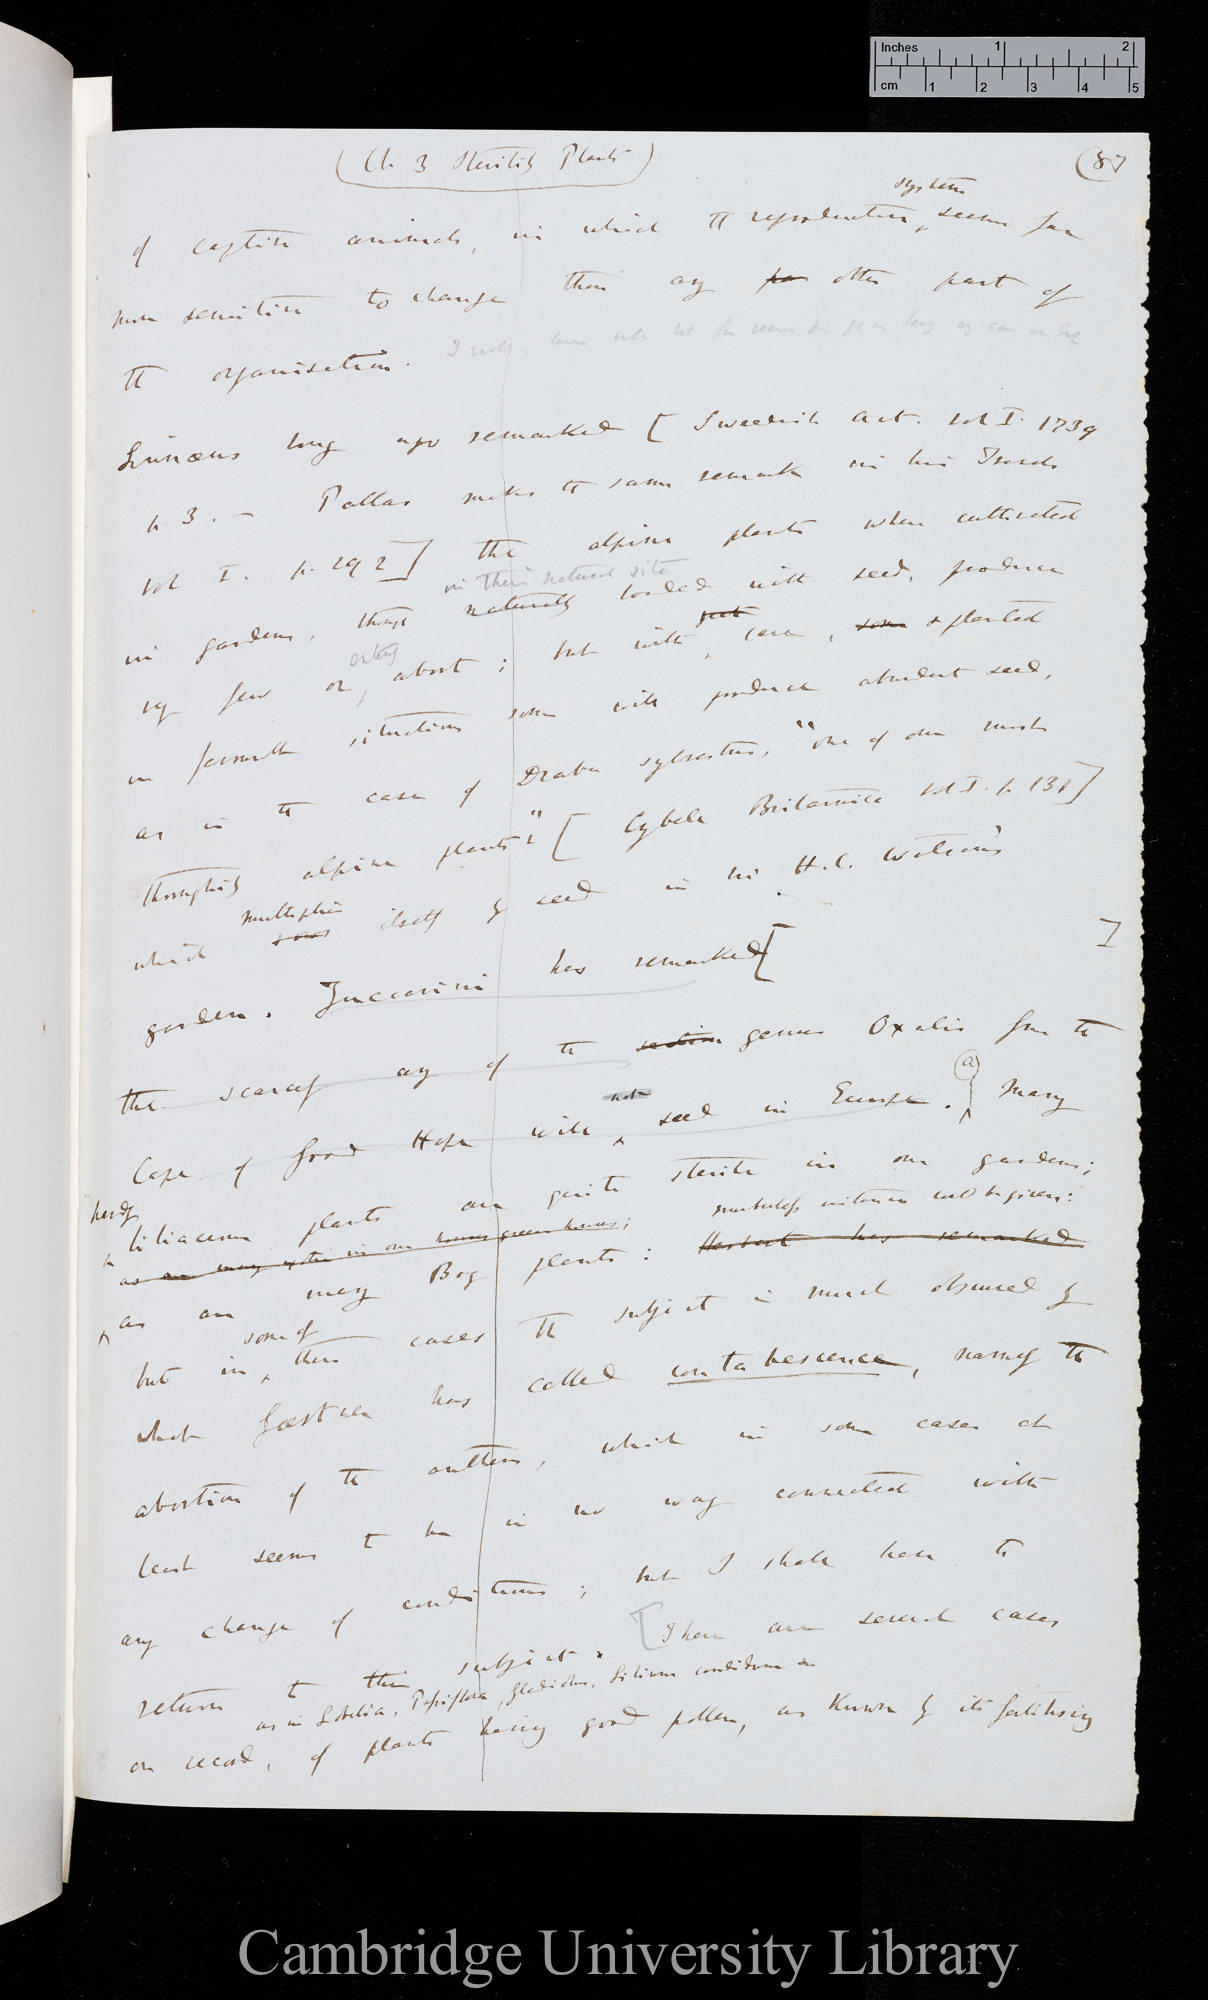 Inches 1 2
cm 1 2 3 4 5
(Ch 3 Sterility Plants)
(87
system
of captive animals, in which the reproductive seems far
more sensitive to change than any pa other part of
the organisation.
Linnæus long ago remarked [Swedish Act. vol I. 1739
p. 3. — Pallas makes the same remark in his Travels
vol I. p. 292] the alpine plants when cultivated
in their natural site
in gardens, though naturally loaded with seed, produce
very few or entirely abort; but with great care, some & planted
in favourable situations some will produce abundant seed,
as in the case of Draba sylvestris, "one of our most
thoroughly alpine plants" [Cybele Britannica vol I. p 131]
multiplies
which sows itself by seed in Mr H.C. Watson's
garden. Zuccarini has remarked [ ]
the scarcely any of the section genus Oxalis from the
not
Cape of Good Hope will seed in Europe. (a) Many
hardy
liliaceous plants are quite sterile in our gardens;
as are many in our green houses; numberless instances could be given:
as are many Bog plants: Herbert has remarked
some of
but in these cases the subject is much obscured by
what Gærtner has called contabescence, namely the
abortion of the anthers, which in some cases at
least seems to be in no way connected with
any change of conditions; but I shall have to
return to this subject. [There are several cases
as in Lobelia, Passiflora, Gladiolus, Lilium candidum &
on record, of plants having good pollen, as known by its fertilising
Cambridge University Library